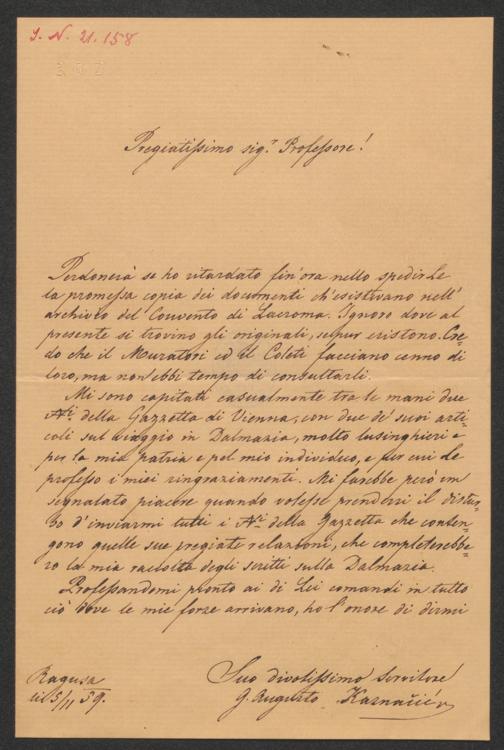 I. N. 21.158
Pregiatissimo sig.r Professore!
Perdonerà se ho ritardato fin'ora nello spedirLe
la promessa copia dei documenti ch'esistevano nell'
archivio del Convento di Lacroma. Ignoro dove al
presente si trovino gli originali, seppur esistono. Cre=
do che il Muratori ed il Coleti facciano cenno di
loro, ma non ebbi tempo di consultarli.
Mi sono capitati casualmente tra le mani due
Ni. della Gazzetta di Vienna, con due de' suoi arti=
coli sul viaggio in Dalmazia, molto lusinghieri e
per la mia patria e pel mio individuo, e per cui Le
professo i miei ringraziamenti. Mi farebbe però un
segnalato piacere quando volesse prendersi il distur=
bo d'inviarmi tutti i Ni. della Gazzetta che conten=
gono quelle sue pregiate relazioni, che completerebbe=
ro la mia raccolta degli scritti sulla Dalmazia.
Professandomi pronto ai di Lei comandi in tutto
ciò dove le mie forze arrivano, ho l'onore di dirmi
Suo divotissimo servitore
Ragusa
li 5/11 59.
G. Augusto Kaznačić